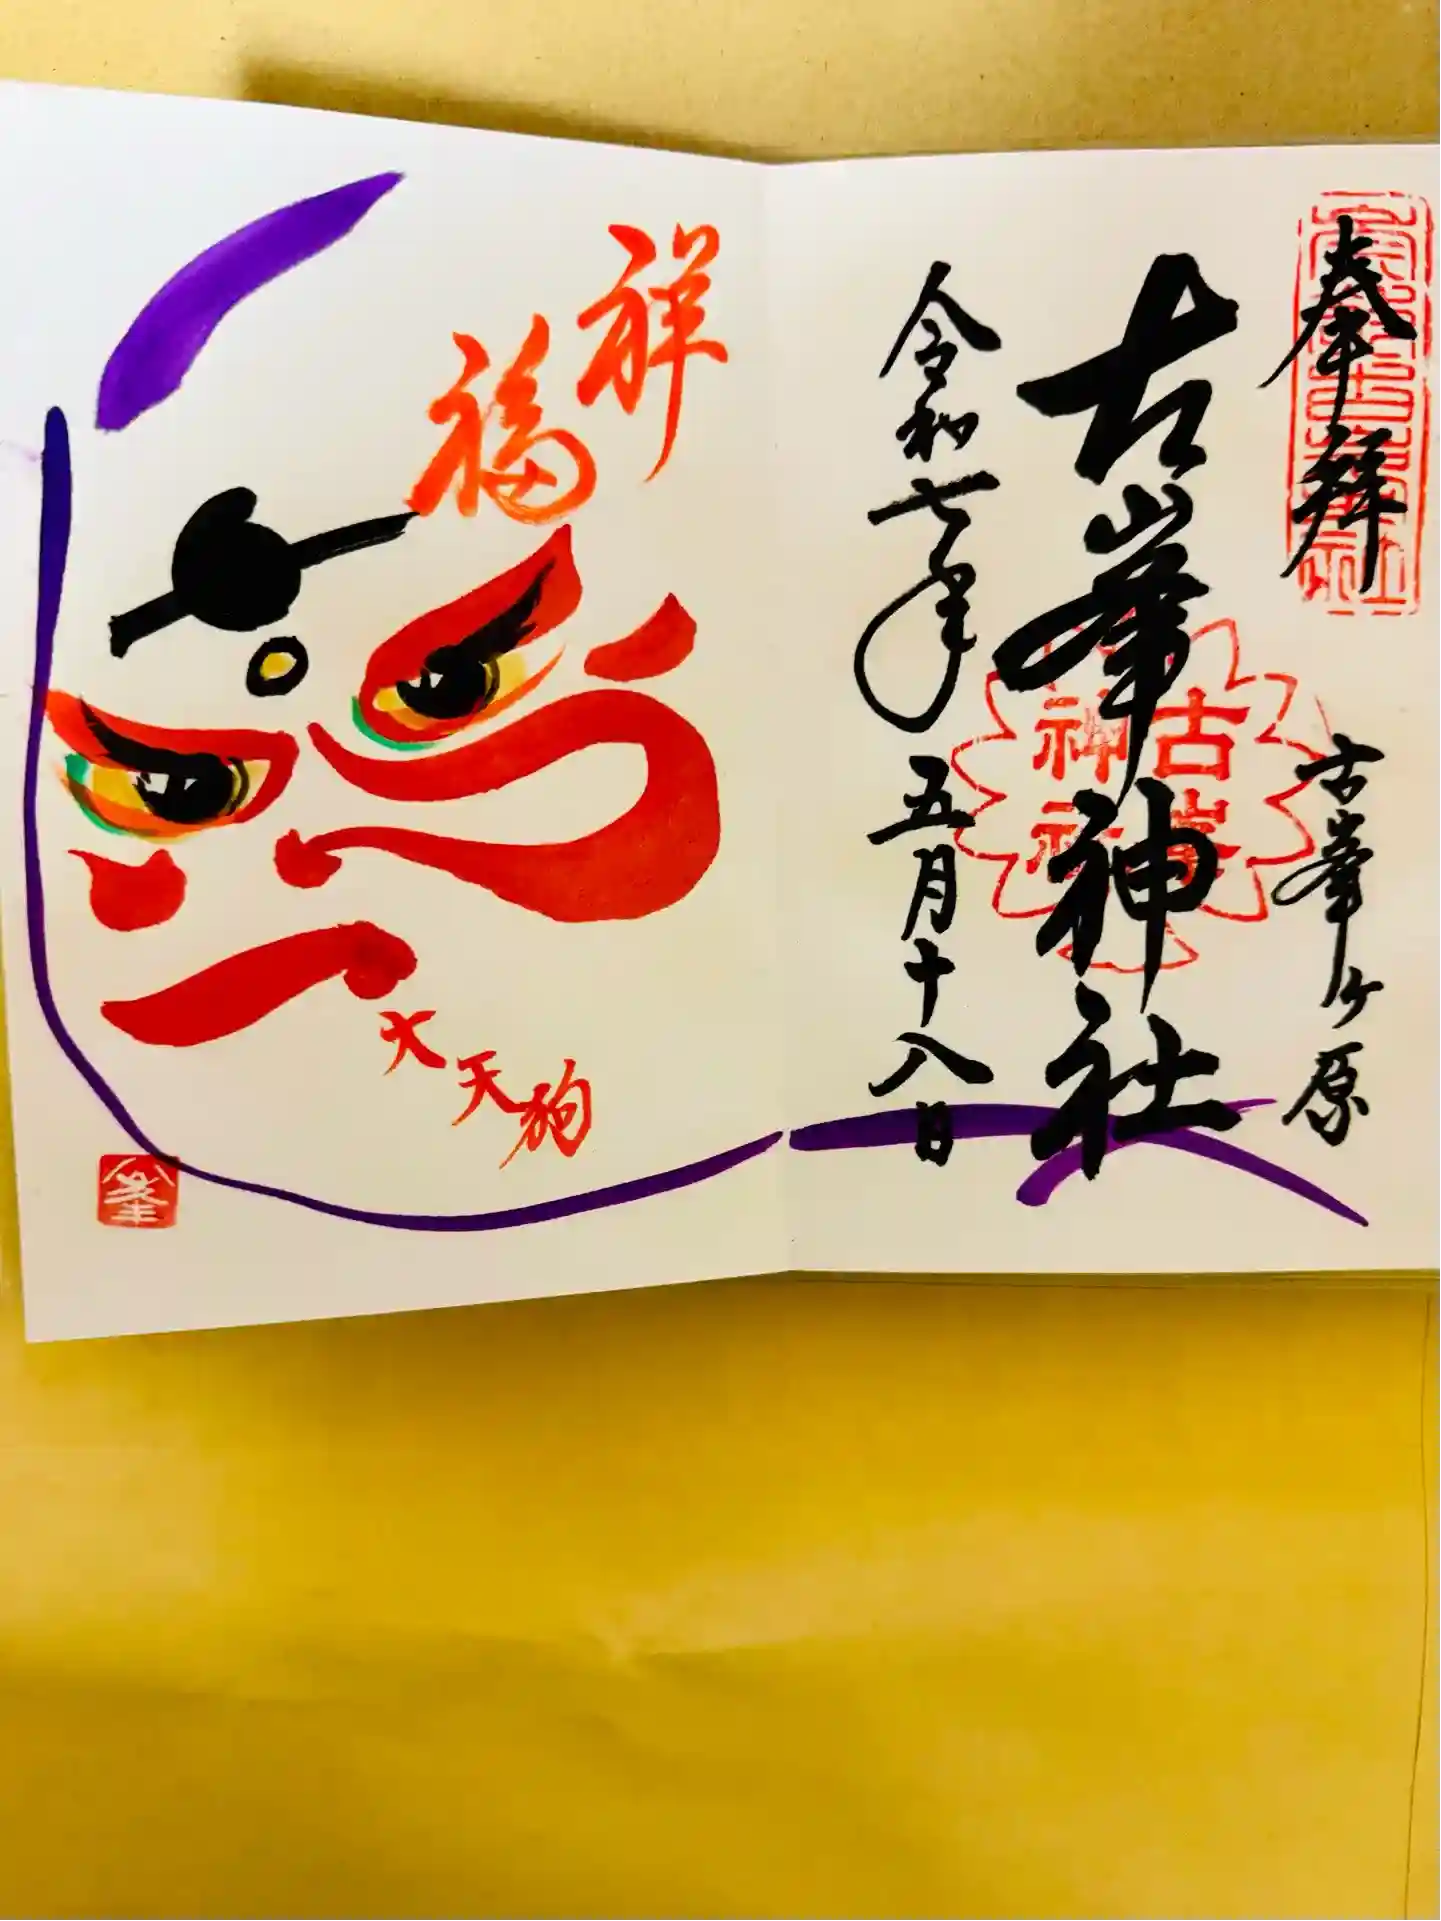 奉拝
古峯ヶ原
古峯神社
古峯
神社
令和七年五月十八日
祥
福
大天狗
峯